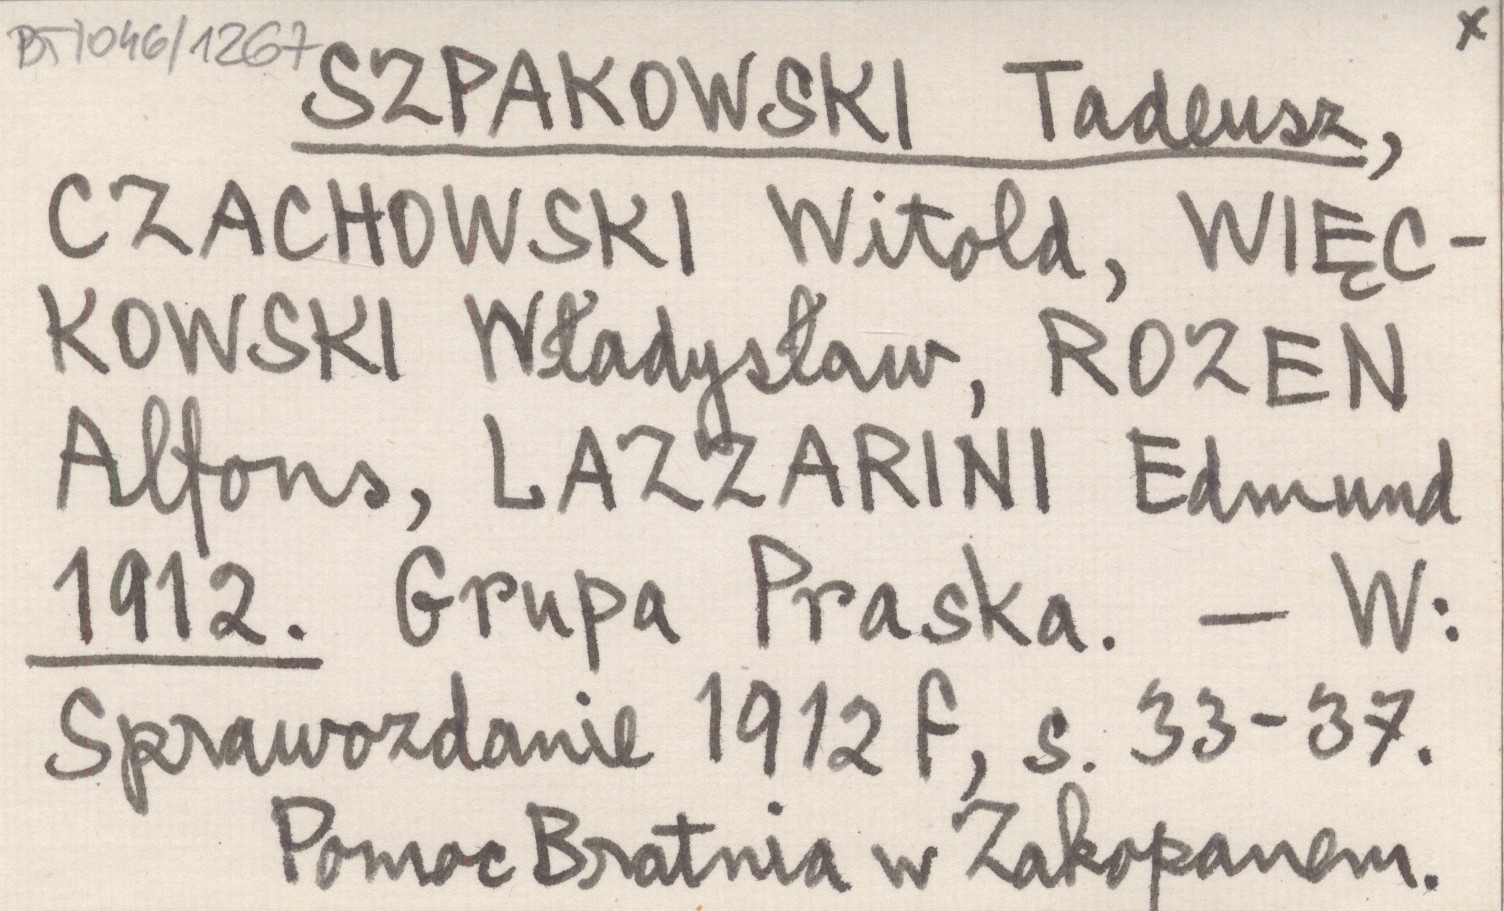 BT/046/1267 x
SZPAKOWSKI Tadeusz,
CZACHOWSKI Witold, WIĘC-
KOWSKI Władysław, ROZEN
Alfons, LAZZARINI Edmund
1912. Grupa Praska. — W:
Sprawozdanie 1912 f, s. 33-37.
Pomoc Bratnia w Zakopanem.